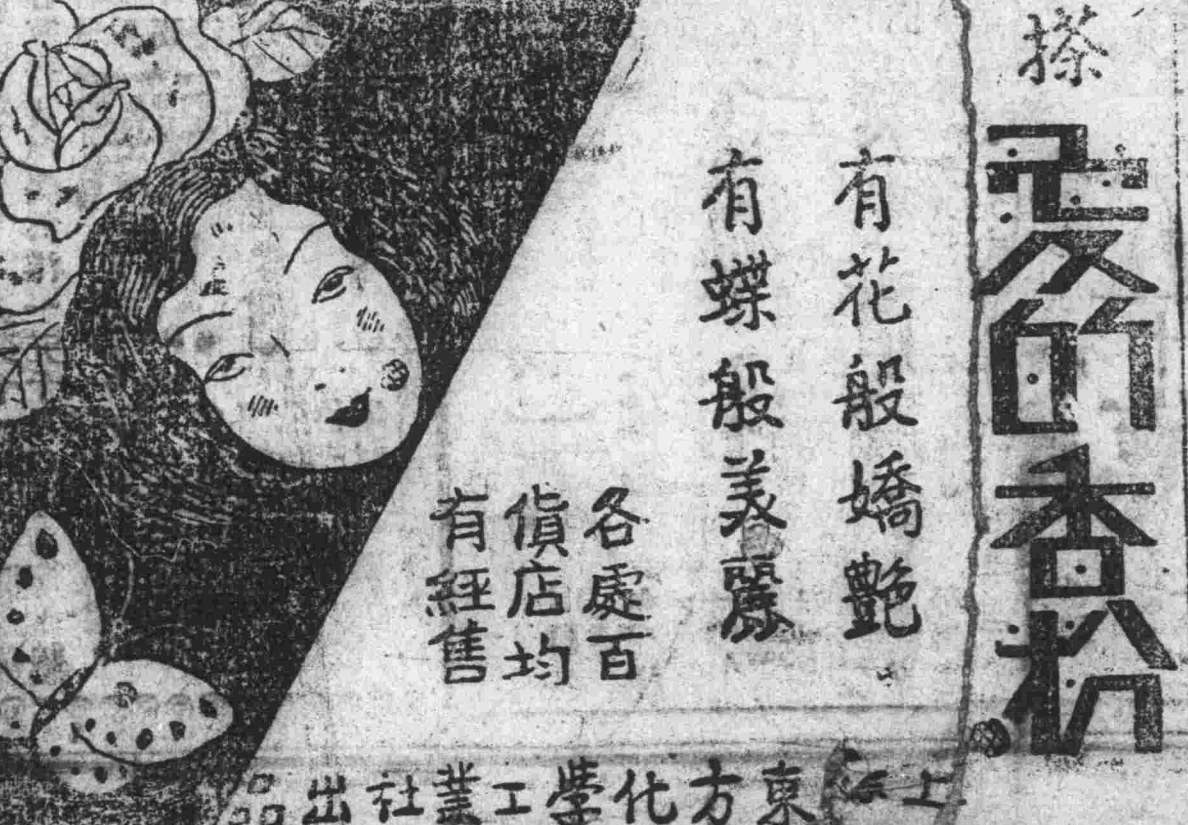 搽
的香粉
有花般嬌艷
有蝶般美麗
各處百
貨店均
有經售
上海東方化學工業社出品